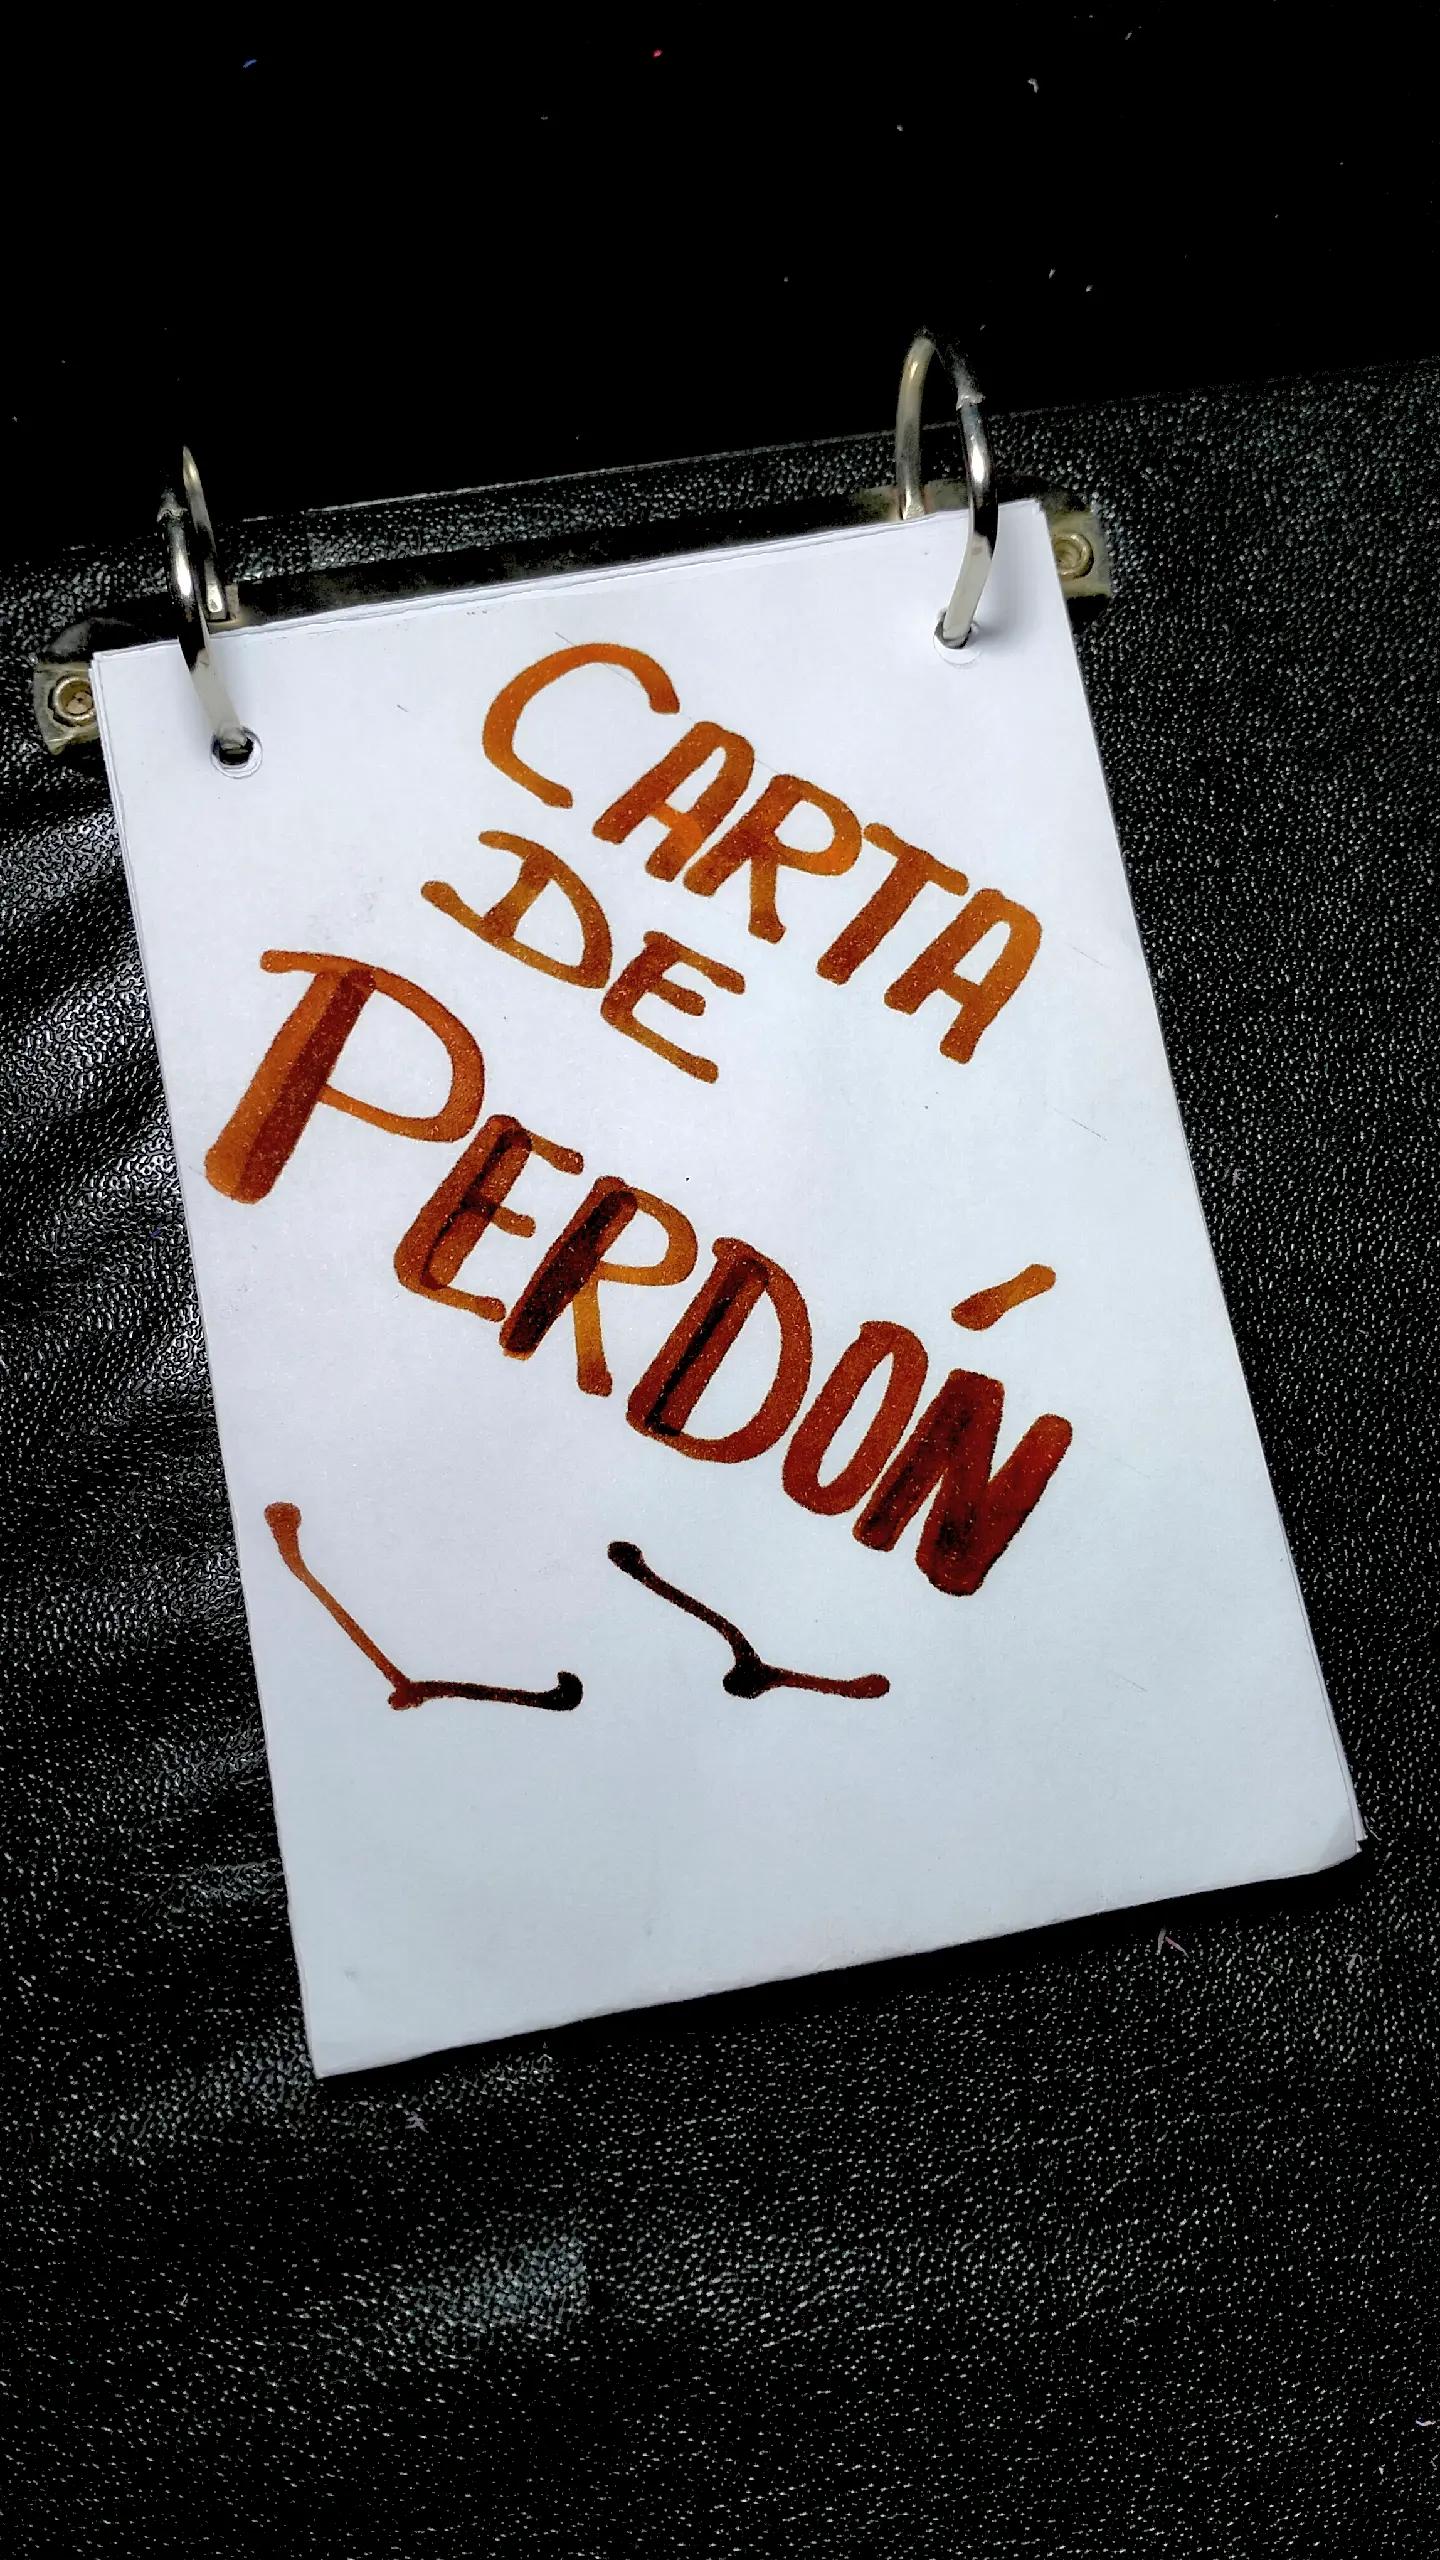 CARTA
DE
PERDÓN